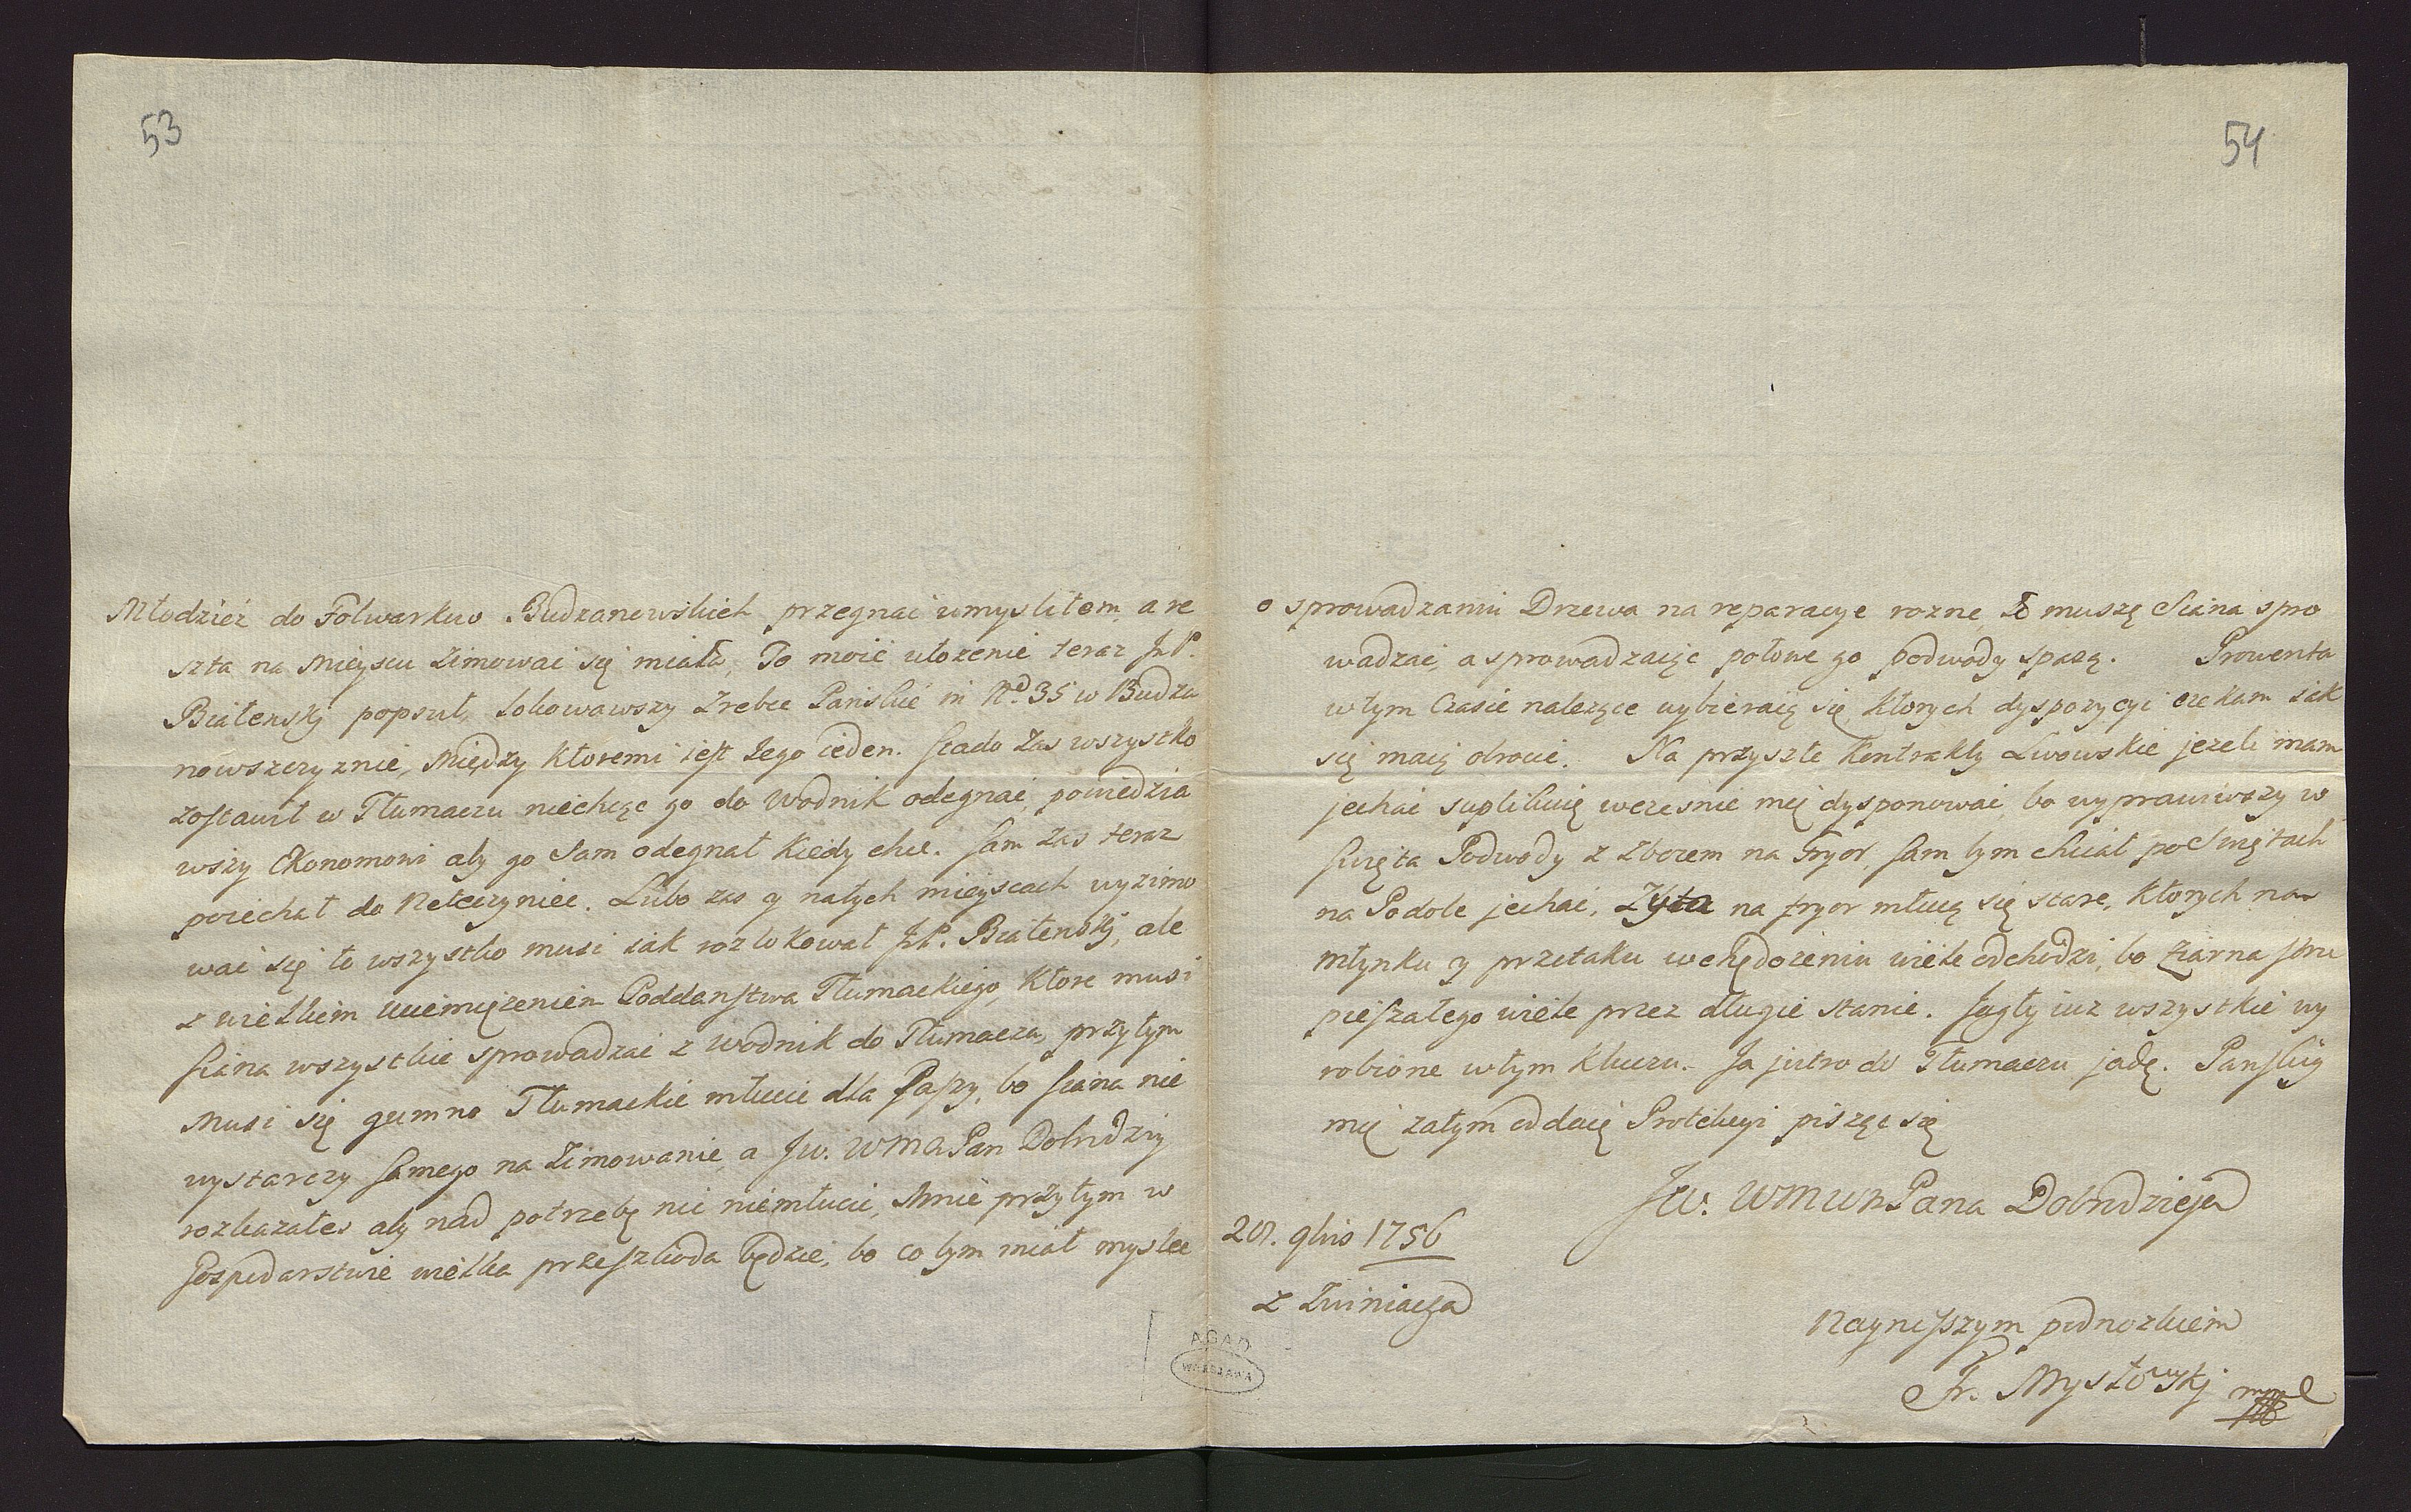 53
Młodzież do Folwarkuo Budzanowskich przegnać umysliłem, a re
szta na Mieyscu Zimować się miała, To moie ułożenie teraz JP.
Białenskj popsuł, lokowawszy Zrebce Panskie in Nr̊o 35 w Budza
nowszczyznie, Między ktoremi iest Iego ieden. Stado zas wszystko
zostawił w Tłumaczu niechcąc go do Wodnik odegnać, powiedzia
wszy Ekonomowi aby go Sam odegnał kiedy chce. Sam zas teraz
poiechał do Netczyniec. Lubo zas y natych mieyscach wyzimo
wać się to wszystko musi iak rozlokował JP. Białenskj, ale
z wielkiem uciemięzeniem Poddanstwa Tłumackiego, ktore musi
Siana wszystkie sprowadzać z Wodnik do Tłumacza, przytym
Musi się gumno Tłumackie młucić dla Paszy, bo Siana nie
wystarczy samego na Zimowanie, a Jw. WMM Pan Dobrodziy
rozkazałes aby nad potrzebę nic niemłucić, Mnie przytym w
Gospodarstwie wielka przeszkoda będzie, bo co bym miał myslec
54
o sprowadzaniu Drzewa na reparacye rozne, To muszę Siana spro
wadzać, a sprowadzaiąc połowę go podwody spasą. Prowenta
wtym Czasie nalezące wybieraią się, ktorych dyspozycyi czekam iak
się maią obrocić. Na przyszłe Kontrakty Lwowskie jezeli mam
jechać suplikuię wczesnie mię dysponować, bo wyprawiwszy w
Swięta Podwody z Zbozem na Fryor, sam bym chciał po Swiętach
na Podole jechać. Zyta na fryor młucą się stare, ktorych na
młynku y przetaku wchędożeniu wiele odchodzi, bo ziarna stru
pieszałego wiele przez długie stanie. Jagły iuz wszystkie wy
robione wtym kluczu. Ja jutro do Tłumacza jadę. Panskiey
mię zatym oddaię Protekcyi pisząc się
Jw. WMWM Pana Dobrodzieja
20. 9bris 1756
z Zwiniacza
Nayniższym podnozkiem
Fr. Mysłowskj mpp
AGAD
WARSZAWA